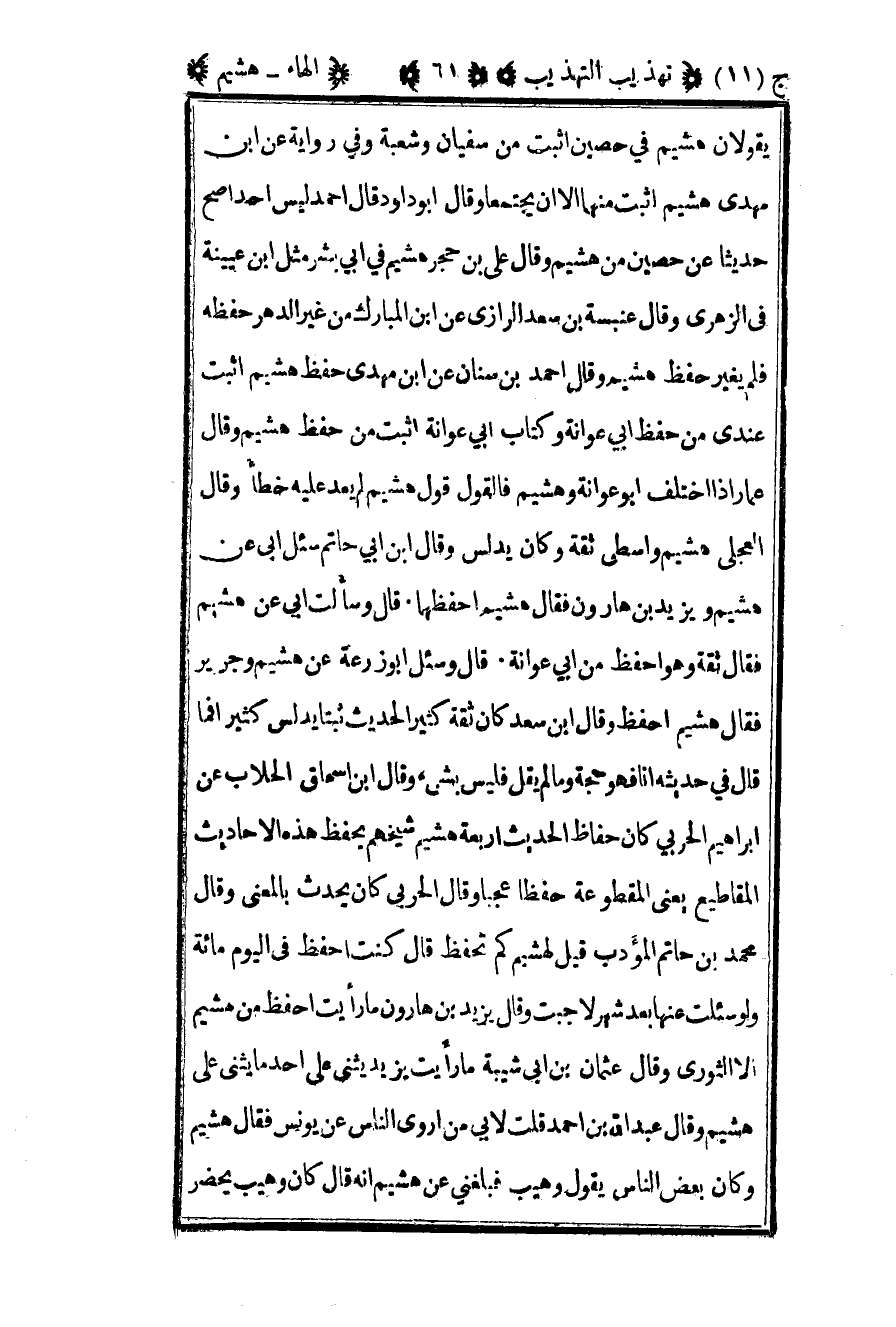 ج (١١) ﴿ تهذيب التهذيب ﴾ ﴿ ٦١ ﴾ ﴿ الهاء ـ هشيم ﴾
يقولان هشيم في حصين اثبت من سفيان وشعبة وفي رواية عن ابن
مهدى هشيم اثبت منها الا ان يجتمعا وقال ابو داود قال احمد ليس احد اصح
حديثا عن حصين من هشيم وقال على بن حجر هشيم في ابي بشر مثل ابن عيينة
فى الزهرى وقال عنبسة بن سعد الرازى عن ابن المبارك من غير الدهر حفظه
فلم يغير حفظ هشيم وقال احمد بن سنان عن ابن مهدى حفظ هشيم اثبت
عندى من حفظ ابي عوانة وكتاب ابي عوانة اثبت من حفظ هشيم وقال
عمار اذا اختلف ابو عوانة وهشيم فالقول قول هشيم لم يعد عليه خطأ وقال
العجلى هشيم واسطى ثقة وكان يدلس وقال ابن ابي حاتم سئل ابى عن
هشيم ويزيد بن هارون فقال هشيم احفظها · قال وسألت ابي عن هشيم
فقال ثقة وهو احفظ من ابي عوانة · قال وسئل ابو زرعة عن هشيم وجرير
فقال هشيم احفظ وقال ابن سعد كان ثقة كثير الحديث ثبتا يدلس كثيرا فما
قال في حديثه انا فهو حجة وما لم يقل فليس بشىء وقال ابن اسحاق الحلاب عن
ابراهيم الحربي كان حفاظ الحديث اربعة هشيم شيخهم يحفظ هذه الاحاديث
المقاطيع يعنى المقطوعة حفظا عجبا وقال الحربي كان يحدث بالمعنى وقال
محمد بن حاتم المؤدب قيل لهشيم كم تحفظ قال كنت احفظ فى اليوم مائة
ولو سئلت عنها بعد شهر لاجبت وقال يزيد بن هارون ما رأيت احفظ من هشيم
الا الثورى وقال عثمان بن ابي شيبة ما رأيت يزيد يثنى على احد ما يثنى على
هشيم وقال عبد الله بن احمد قلت لابي من اروى الناس عن يونس فقال هشيم
وكان بعض الناس يقول وهيب فبلغني عن هشيم انه قال كان وهيب يحضر